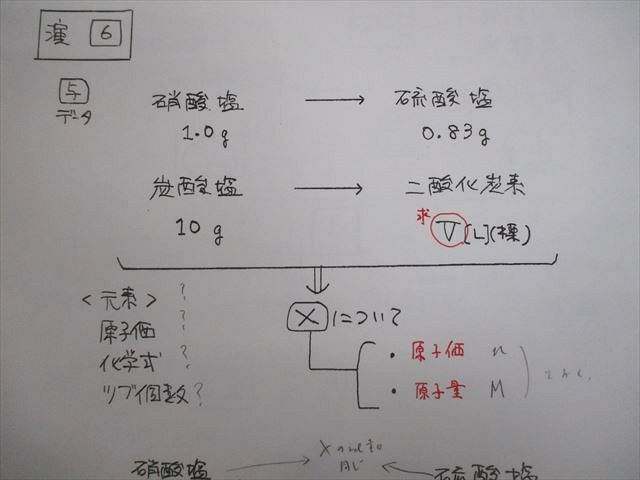 演 6
与
データ
硝酸塩 → 硫酸塩
1.0g 0.83g
炭酸塩 → 二酸化炭素
10g 求 V[L](標)
<元素> ?
原子価 ?
化学式 ?
ツブ個数?
X について
・原子価 n
・原子量 M
とおく.
Xのmolは
同じ
硝酸塩 → ← 硫酸塩